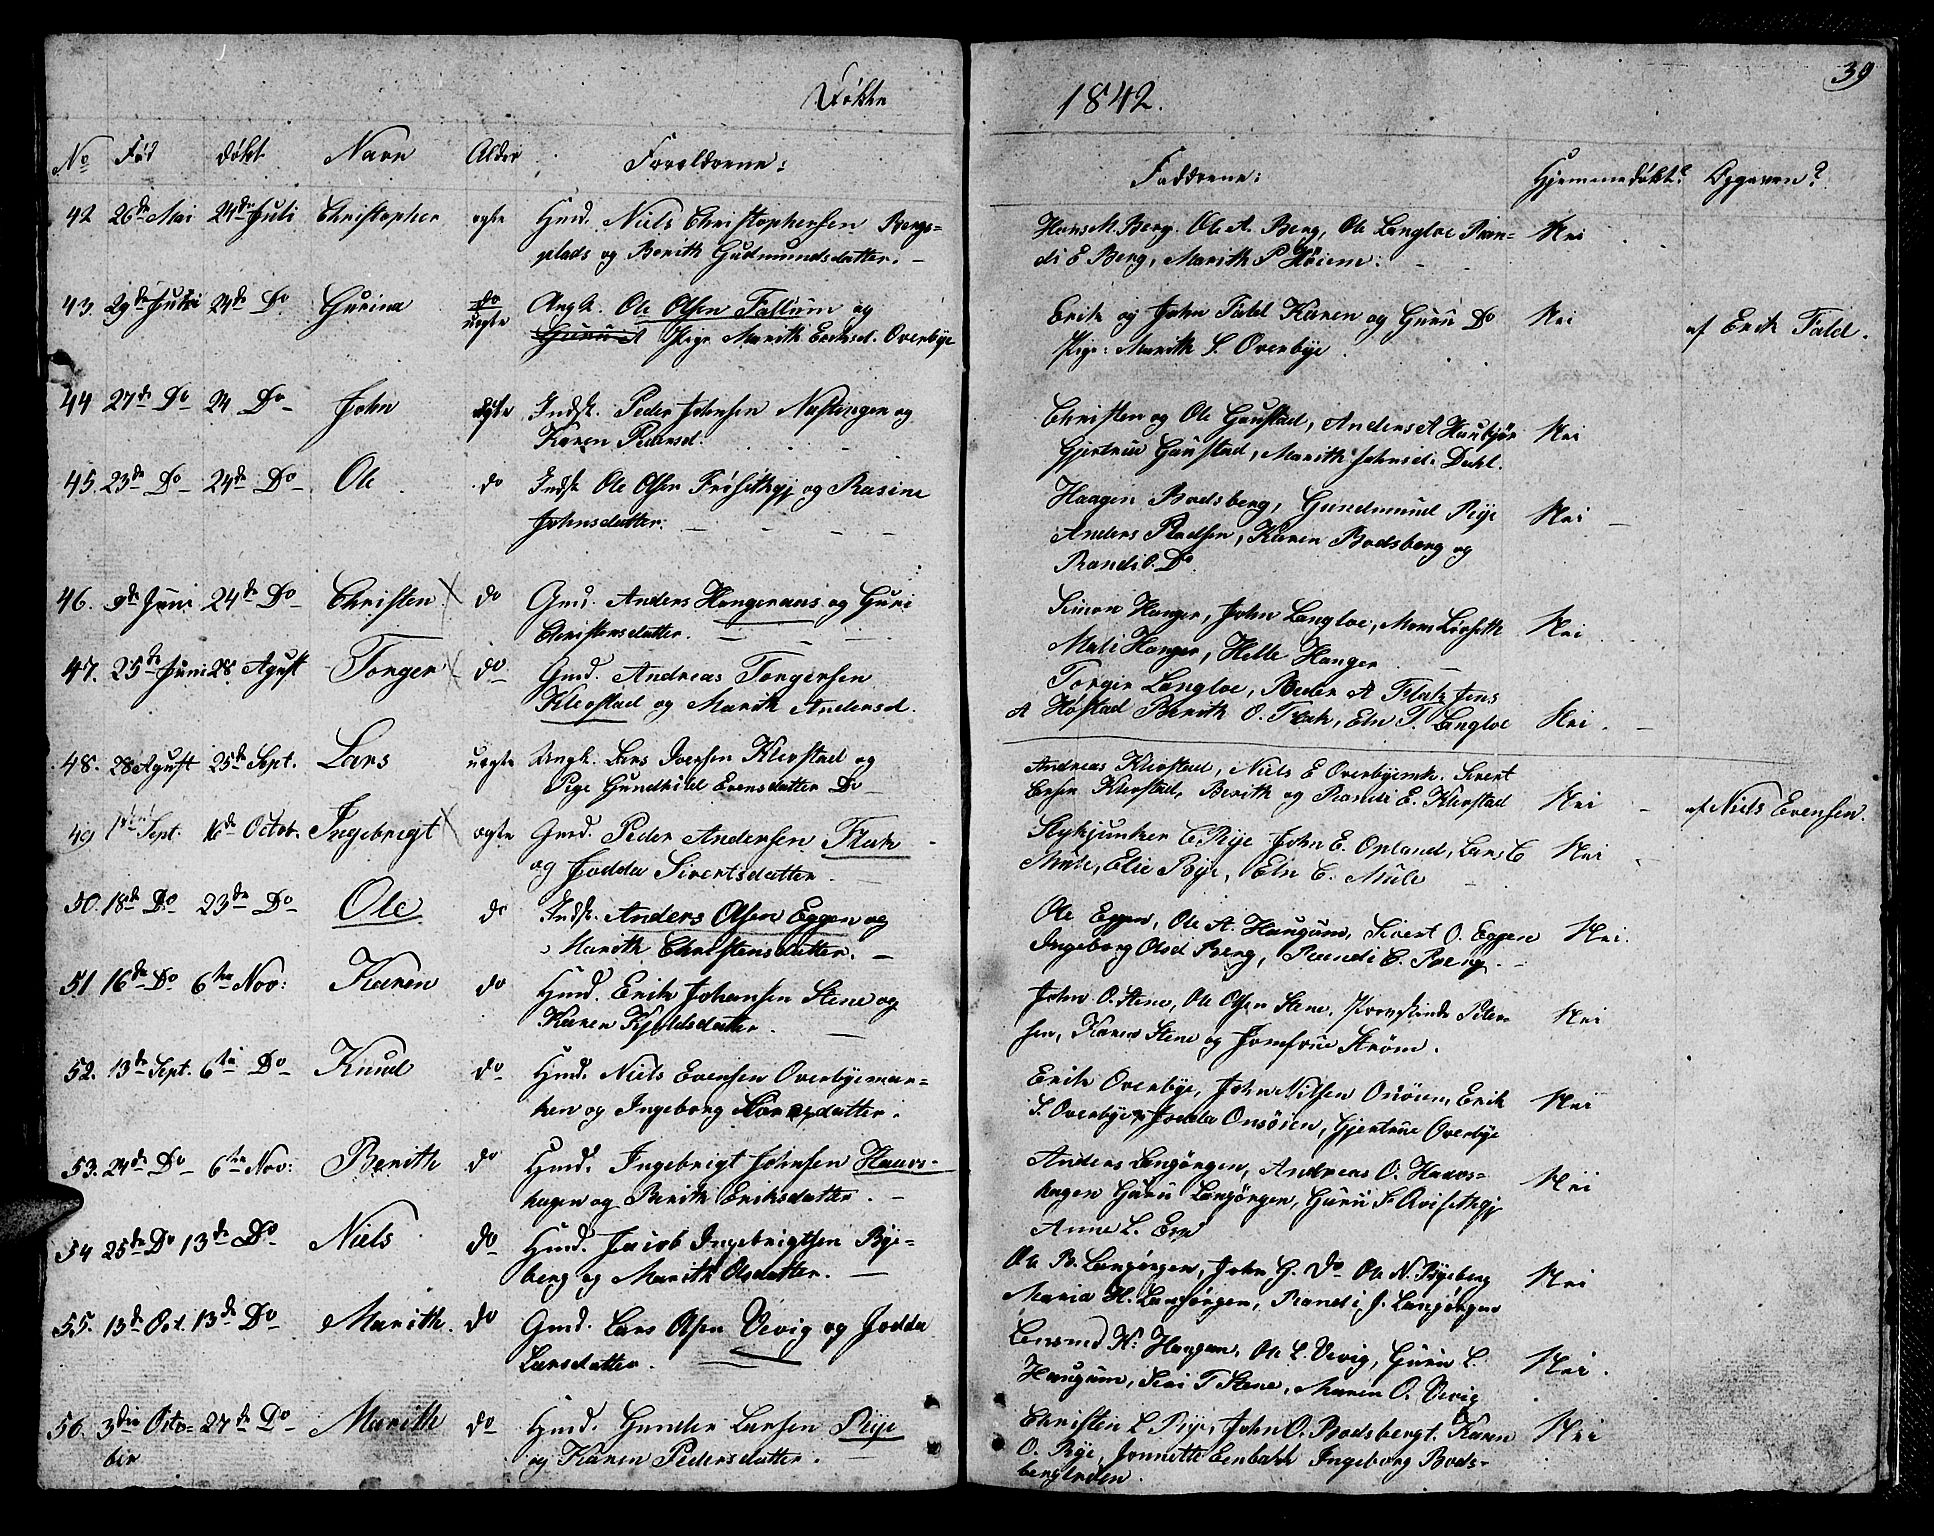 Døbte
1842.
39
No Fød døbt Navn Alder Forældrene:
Faddrene: Hjemmedøbt? Opgaven?
42 26de Mai 24de Juli Christopher ægte Hmd. Niels Christophersen Bergs=
plads og Berith Gudmundsdatter. —
Hans M. Berg. Ole A. Berg, Ole Langloe Ran=
di E Berg, Marith P Høiem. Nei
43. 29de 24de Do Gurina do
uægte Ungk. Ole Olsen Fallum og
Pige Marith Eriksd. Overbye
Erik og John Fald Karen og Guru Do
Pige: Marith S. Overbye. Nei af Erik Fald.
44 27de Do 24 Do John ægte Indst. Peder Johnsen Nastingen og
Karen Pedersd.
Christen og Ole Gaustad, Anders A Haubjør
Gjertrue Gaustad, Marith Johnsd. Dahl. Nei
45. 23de Do 24de Do Ole do Indst Ole Olsen og Rasine
Johnsdatter.
Haagen Bodsberg, Gundmund Rye
Anders Karen Bodsberg og
Randi O. Do Nei
46. 9de Juni 24de Do Christen do Gmd. Anders Hangeraas og Guri
Christensdatter.
Simon Hanger, John Langloe,
Mali Hanger, Helle Hanger Nei
47. 25de Juni 28 Agust Torger do Gmd. Andreas Torgersen
Klevstad og Marith Andersd.
Torger Langloe, Peder A Flak Jens
A Høstad Berith O. Flak, Eln T. Langloe Nei
48. 28 Agust 25de Sept. Lars uægte Ungk. Lars Iversen Klevstad og
Pige Gundhild Evensdatter Do
Andreas Klevstad, Niels E Overbyemk. Sivert
Iversen Klevstad, Berith og Randi E. Klevstad Nei af Niels Evensen.
49 1ste Sept. 16de Octob. Ingebrigt ægte Gmd. Peder Andersen Flak
og Jodda Sivertsdatter.
C Rye John E. Opland, Lars C
Mule, Elie Rye, Eln C. Mule Nei
50. 18de Do 23de Do Ole do Indst. Anders Olsen Eggen og
Marith Christensdatter.
Ole Eggen, Ole A. Haugum, Sivert O. Eggen
Ingeborg Olsd Berg, Randi E. Berg. Nei.
51 16de Do 6te Nov: Karen do Hmd. Erik Johansen Stene og
Karen Kjeldsdatter.
John O. Stene, Ole Olsen Stene, Peter=
sen, Karen Stene og Jomfrue Strøm. Nei
52. 13de Sept. 6te Do Knud do Hmd. Niels Evensen Overbyemar=
ken og Ingeborg datter.
Erik Overbye, John Nilsen Onsøien, Erik
S. Overbye, Jodda Onsøien, Gjertrue Overbye Nei
53. 24de Do 6te Nov: Berith do Hmd. Ingebrigt Johnsen Haavs=
hagen og Berith Eriksdatter.
Anders Langørgen, Andreas O. Haavs=
hagen Guru Langørgen, Guru S.
Anne L. Nei
54 25de Do 13de Do Niels do Hmd. Jacob Ingebrigtsen Rye=
berg og Marith Olsdatter. —
Ole B. Langørgen, John G. Do Ole N. Ryeberg
Maria H. Langørgen, Randi J. Langørgen Nei
55. 13de Oct. 13de Do Marith do Gmd. Lars Olsen Vevig og Jodda
Larsdatter.
Lensmd K: Haugum, Ole L. Vevig, Guru L.
Haugum, Siri T Stene, Maren O. Vevig Nei.
56. 3die Octo= 27de Do Marith do Hmd. Gunder Larsen Rye
ber og Karen Pedersdatter. —
Christen L Rye, John O. Bodsbergt. Karen
O. Rye, Jonnette Eenbakk Ingeborg Bods=
bergleden. Nei